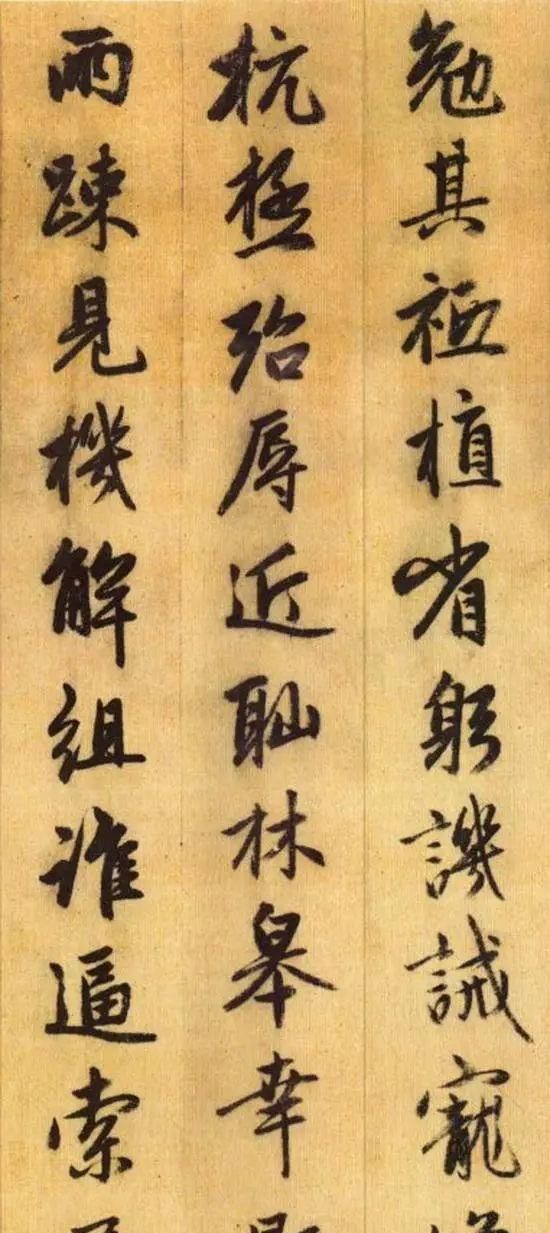 勉其祗植省躬譏誡寵
杭極殆辱近恥林皋幸
兩疎見機解組誰逼索